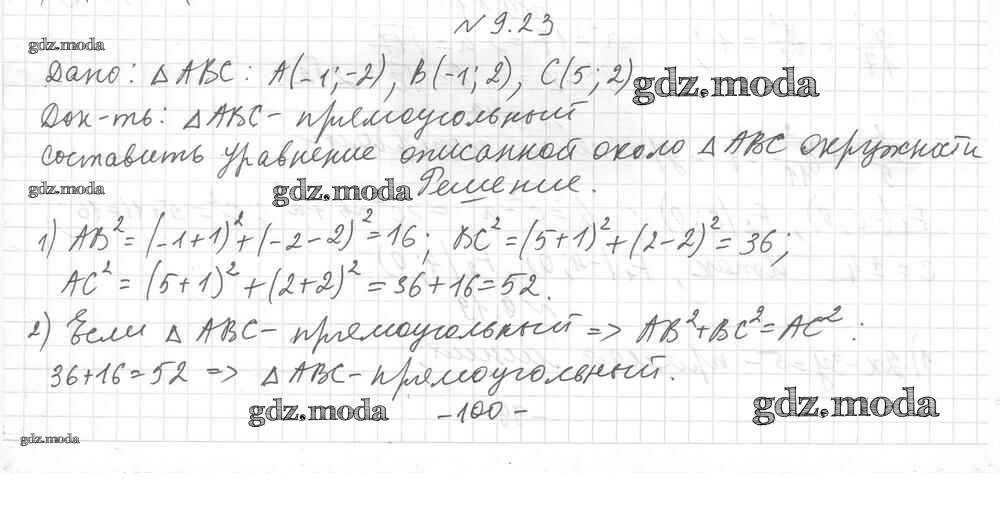 № 9.23
gdz.moda
Дано: △ABC: A(-1;-2), B(-1;2), C(5;2)
gdz.moda
Док-ть: △ABC - прямоугольный
составить уравнение описанной около △ABC окружности
gdz.moda
gdz.moda
Решение.
1) AB² = (-1+1)² + (-2-2)² = 16; BC² = (5+1)² + (2-2)² = 36;
AC² = (5+1)² + (2+2)² = 36+16 = 52.
2) Если △ ABC - прямоугольный => AB²+BC²=AC² :
36+16=52 => △ABC - прямоугольный.
gdz.moda
-100-
gdz.moda
gdz.moda